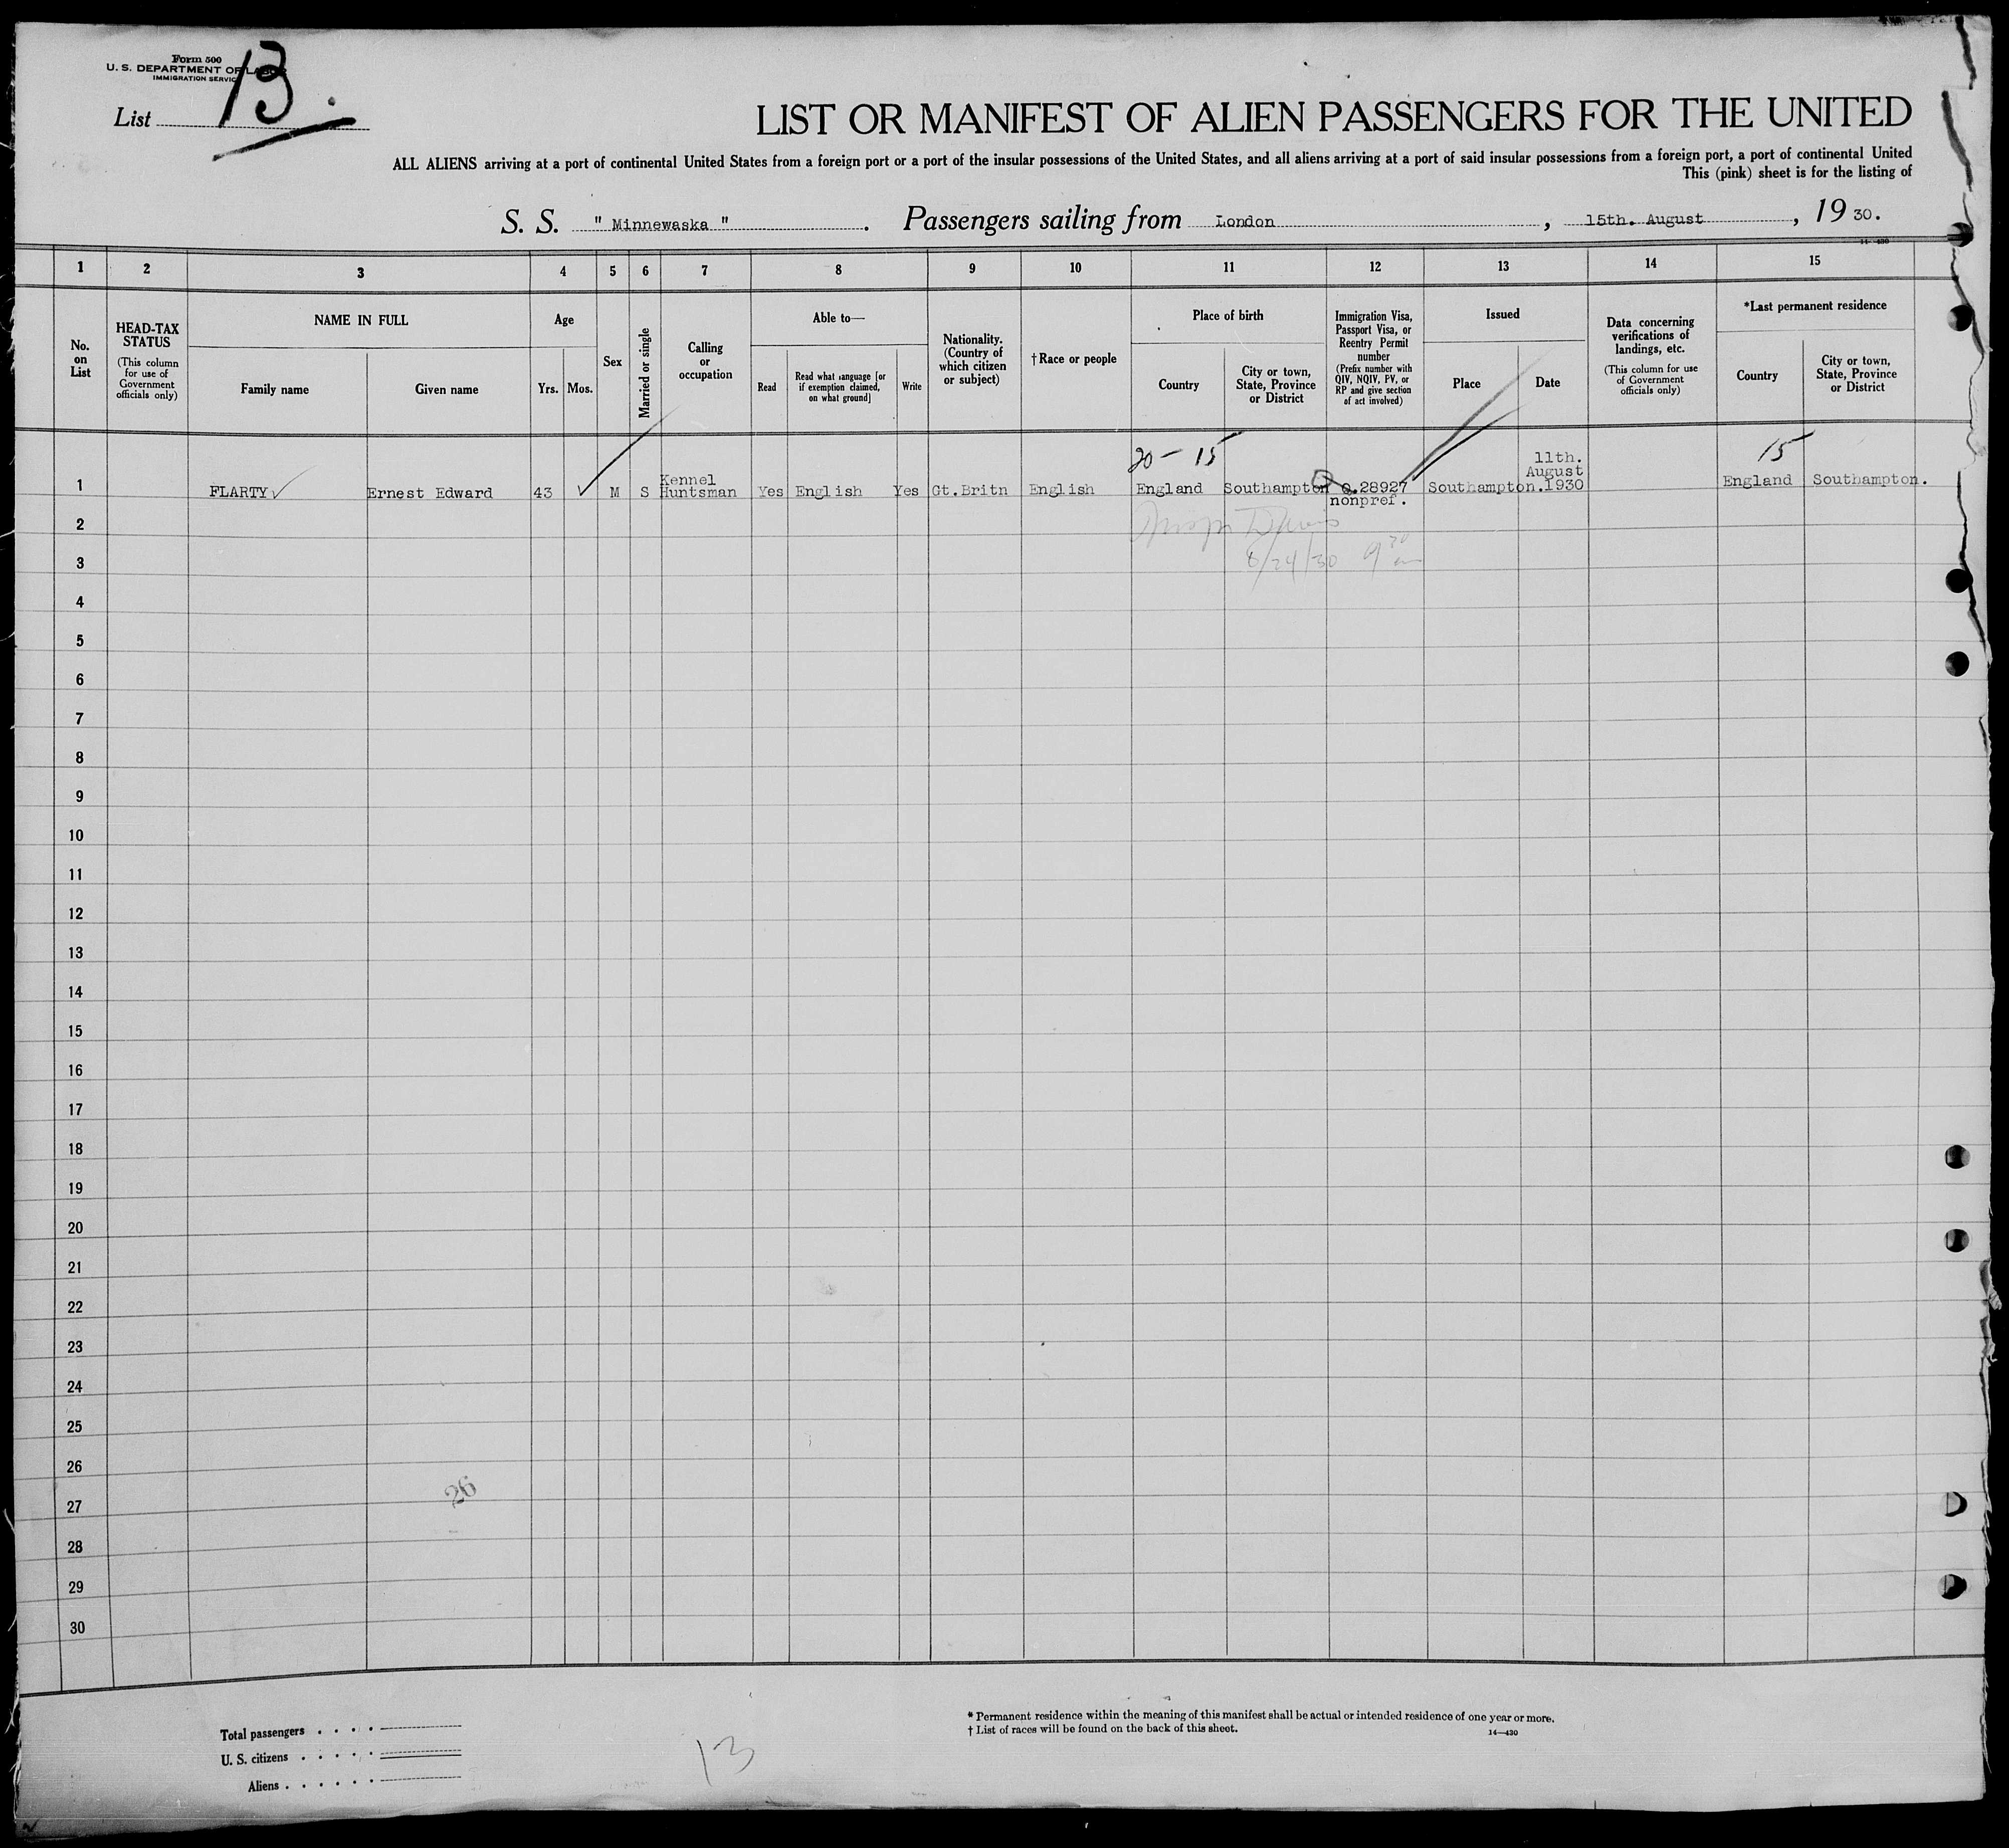 Form 500
U. S. DEPARTMENT OF LABOR
IMMIGRATION SERVICE
List 13.
LIST OR MANIFEST OF ALIEN PASSENGERS FOR THE UNITED
ALL ALIENS arriving at a port of continental United States from a foreign port or a port of the insular possessions of the United States, and all aliens arriving at a port of said insular possessions from a foreign port, a port of continental United
This (pink) sheet is for the listing of
S. S. " Minnewaska " . Passengers sailing from London , 15th. August , 19 30.
14-430
1 2 3 4 5 6 7 8 9 10 11 12 13 14 15
No. on List
HEAD-TAX STATUS
(This column for use of Government officials only)
NAME IN FULL
Family name
Given name
Age
Yrs. Mos.
Sex
Married or single
Calling or occupation
Able to—
Read
Read what language [or if exemption claimed, on what ground]
Write
Nationality. (Country of which citizen or subject)
†Race or people
Place of birth
Country
City or town, State, Province or District
Immigration Visa, Passport Visa, or Reentry Permit number
(Prefix number with QIV, NQIV, PV, or RP and give section of act involved)
Issued
Place
Date
Data concerning verifications of landings, etc.
(This column for use of Government officials only)
*Last permanent residence
Country
City or town, State, Province or District
20 - 15
15
11th.
August
Kennel
1 FLARTY Ernest Edward 43 M S Huntsman Yes English Yes Gt.Britn English England Southampton Q.28927 Southampton. 1930 England Southampton.
nonpref.
2
8/24/30 9 30 am
3
4
5
6
7
8
9
10
11
12
13
14
15
16
17
18
19
20
21
22
23
24
25
26
26
27
28
29
30
Total passengers . . . .
U. S. citizens . . . . .
Aliens . . . . . .
13
* Permanent residence within the meaning of this manifest shall be actual or intended residence of one year or more.
† List of races will be found on the back of this sheet.
14—430